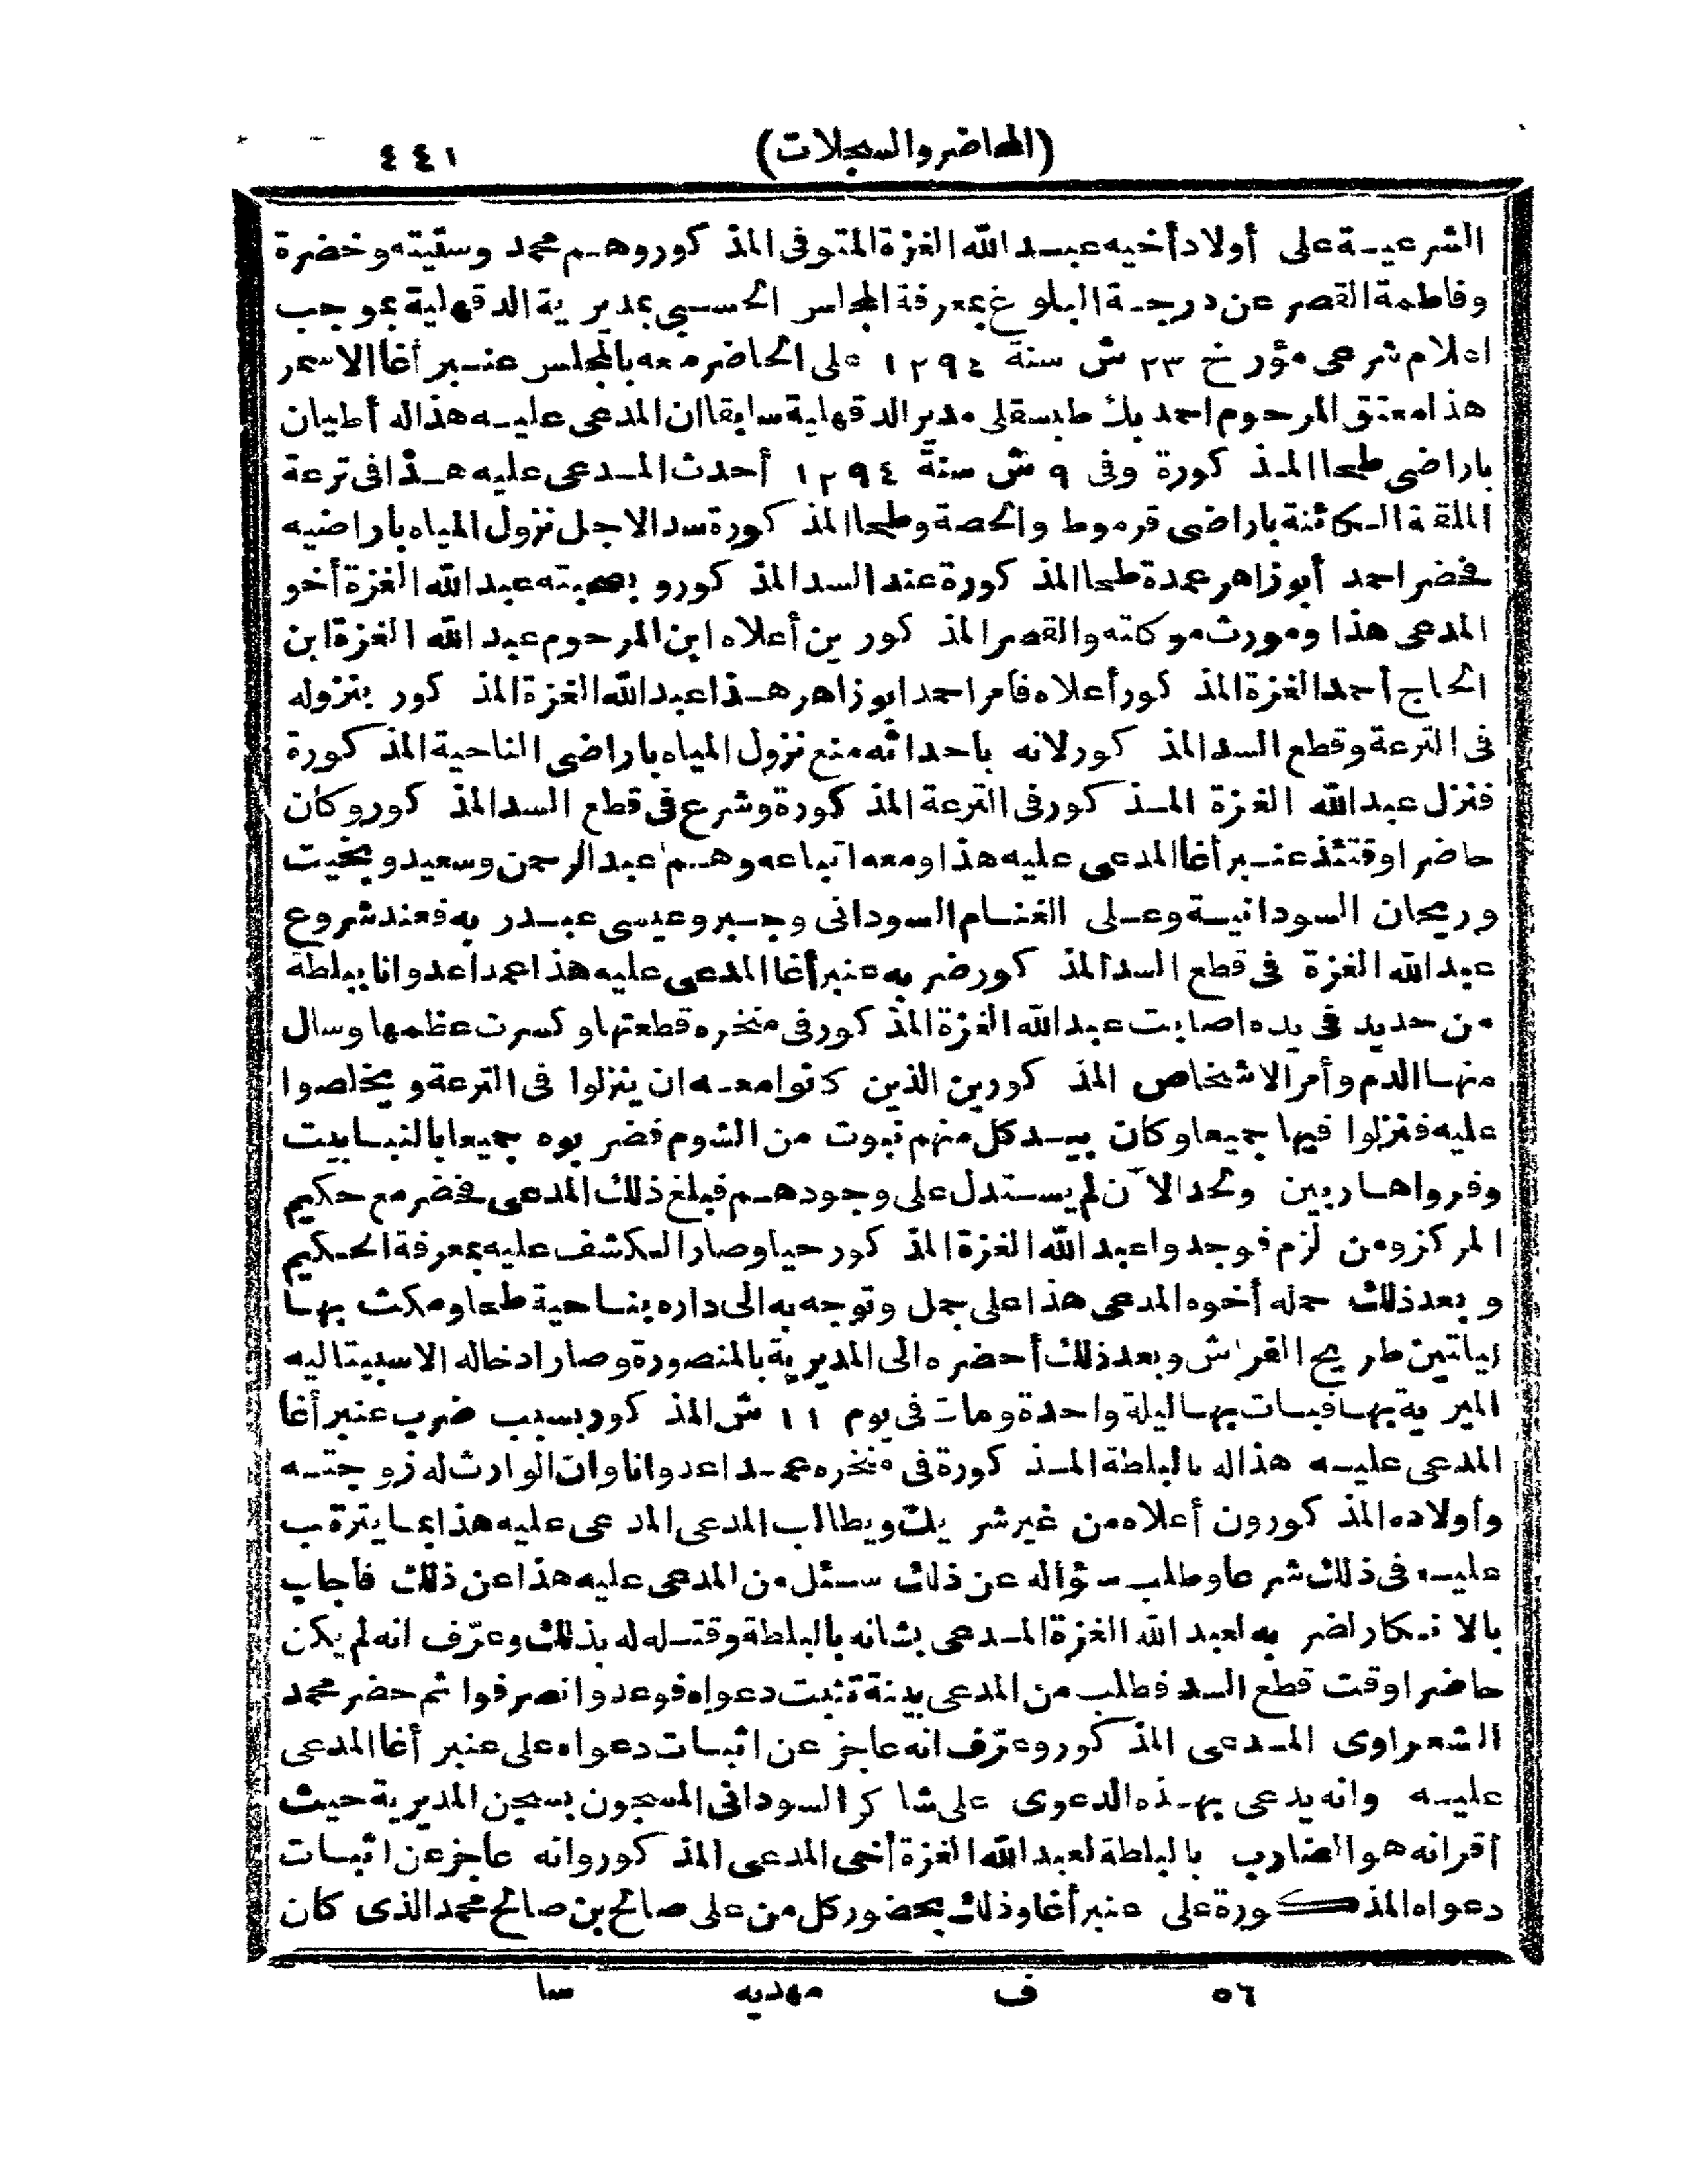 (المحاضر والسجلات) ٤٤١
الشرعية على أولاد أخيه عبد الله الغزة المتوفى المذكور وهم محمد وستيته وخضرة
وفاطمة القصر عن درجة البلوغ بمعرفة المجلس الحسبي بمديرية الدقهلية بموجب
اعلام شرعى مؤرخ ٢٣ ش سنة ١٢٩٤ على الحاضر معه بالمجلس عنبر أغا الاسمر
هذا معتق المرحوم احمد بك طبسقلى مدير الدقهلية سابقا ان المدعى عليه هذا له أطيان
باراضى طحا المذكورة وفى ٩ ش سنة ١٢٩٤ أحدث المدعى عليه هذا فى ترعة
الملقة الكائنة باراضى قرموط والحصة وطحا المذكورة سدا لاجل نزول المياه باراضيه
فحضر احمد أبو زاهر عمدة طحا المذكورة عند السد المذكور و بصحبته عبد الله الغزة أخو
المدعى هذا ومورث موكلته والقصر المذكورين أعلاه ابن المرحوم عبد الله الغزة ابن
الحاج أحمد الغزة المذكور أعلاه فأمر احمد ابو زاهر هذا عبد الله الغزة المذكور بنزوله
فى الترعة وقطع السد المذكور لانه باحداثه منع نزول المياه باراضى الناحية المذكورة
فنزل عبد الله الغزة المذكور فى الترعة المذكورة وشرع فى قطع السد المذكور وكان
حاضرا وقتئذ عنبر أغا المدعى عليه هذا ومعه اتباعه وهم عبد الرحمن وسعيد وبخيت
وريحان السودانية وعلى الغنام السودانى وجبر وعيسى عبد ربه فعند شروع
عبد الله الغزة فى قطع السد المذكور ضربه عنبر أغا المدعى عليه هذا عمدا عدوانا ببلطة
من حديد فى يده اصابت عبد الله الغزة المذكور فى منخره قطعتها وكسرت عظمها وسال
منها الدم وأمر الاشخاص المذكورين الذين كانوا معه ان ينزلوا فى الترعة و يخلصوا
عليه فنزلوا فيها جميعا وكان بيد كل منهم نبوت من الشوم فضربوه جميعا بالنبابيت
وفروا هاربين ولحد الآن لم يستدل على وجودهم فبلغ ذلك المدعى فحضر مع حكيم
المركز ومن لزم فوجدوا عبد الله الغزة المذكور حيا وصار الكشف عليه بمعرفة الحكيم
و بعد ذلك حمله أخوه المدعى هذا على جمل وتوجه به الى داره بناحية طحا ومكث بها
ليلتين طريح الفراش وبعد ذلك أحضره الى المديرية بالمنصورة وصار ادخاله الاسبيتاليه
الميرية بها فبات بها ليلة واحدة ومات فى يوم ١١ ش المذكور بسبب ضرب عنبر أغا
المدعى عليه هذا له بالبلطة المذكورة فى منخره عمدا عدوانا وان الوارث له زوجته
وأولاده المذكورون أعلاه من غير شريك ويطالب المدعى المدعى عليه هذا بما يترتب
عليه فى ذلك شرعا وطلب سؤاله عن ذلك سئل من المدعى عليه هذا عن ذلك فأجاب
بالانكار لضربه لعبد الله الغزة المدعى بشانه بالبلطة وقتله له بذلك وعرّف انه لم يكن
حاضرا وقت قطع السد فطلب من المدعى بينة تثبت دعواه فوعد وانصرفوا ثم حضر محمد
الشعراوى المدعى المذكور وعرّف انه عاجز عن اثبات دعواه على عنبر أغا المدعى
عليه وانه يدعى بهذه الدعوى على شاكر السودانى المسجون بسجن المديرية حيث
اقر انه هو الضارب بالبلطة لعبد الله الغزة أخى المدعى المذكور وانه عاجز عن اثبات
دعواه المذكورة على عنبر أغا وذلك بحضور كل من على صالح بن صالح محمد الذى كان
٥٦ ف مهديه سا